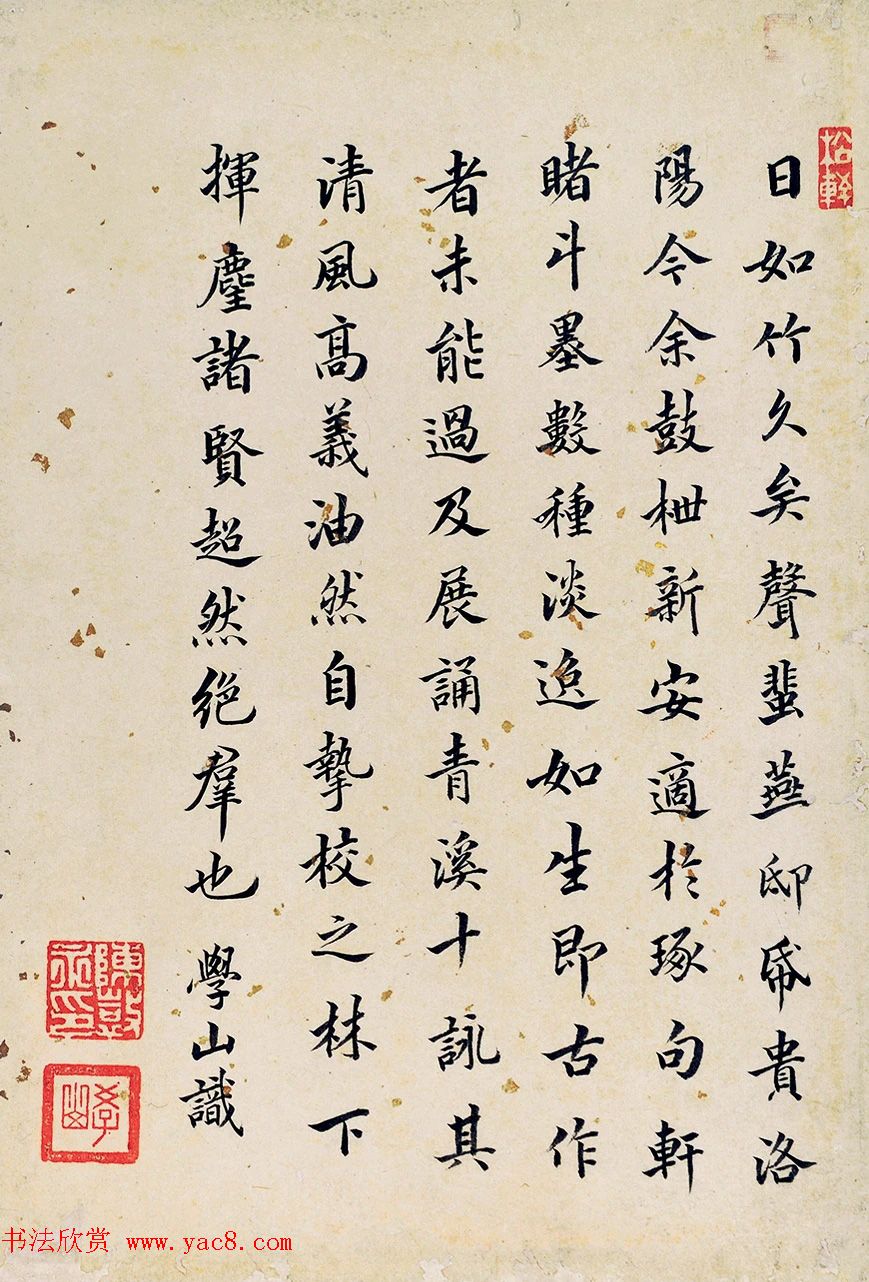 日如竹久矣聲蜚燕邸帋貴洛
陽今余鼓枻新安適於琢句軒
睹斗墨數種淡逸如生即古作
者未能過及展誦青溪十詠其
清風高義油然自摯校之林下
揮麈諸賢超然絕羣也 學山識
陳敱永印
學山
書法欣赏 www.yac8.com